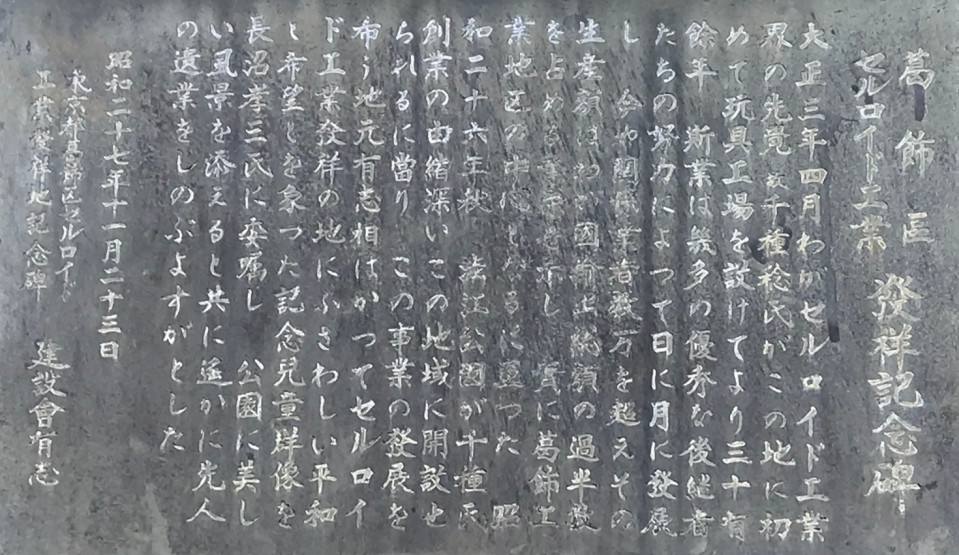 葛飾區
セルロイド工業
發祥記念碑
大正三年四月わがセルロイド工業
界の先覚故千種稔氏がこの地に初
めて玩具工場を設けてより三十有
餘年 斯業は幾多の優秀な後継者
たちの努力によつて日に月に發展
し 今や関係業者数万を超えその
生産額はわが國輸出総額の過半数
を占める を示し 実に葛飾工
業地区の中枢となるに至つた 昭
和二十六年秋 渋江公園が千種氏
創業の由緒深いこの地域に開設せ
られるに當り この事業の發展を
布う地元有志相はかつてセルロイ
ド工業發祥の地にふさわしい平和
と希望とを象つた記念兒童群像を
長沼孝三氏に委嘱し 公園に美し
い風景を添えると共に遥かに先人
の遺業をしのぶよすがとした
昭和二十七年十一月二十三日
東京都葛飾区セルロイド
工業發祥地記念碑 建設會有志